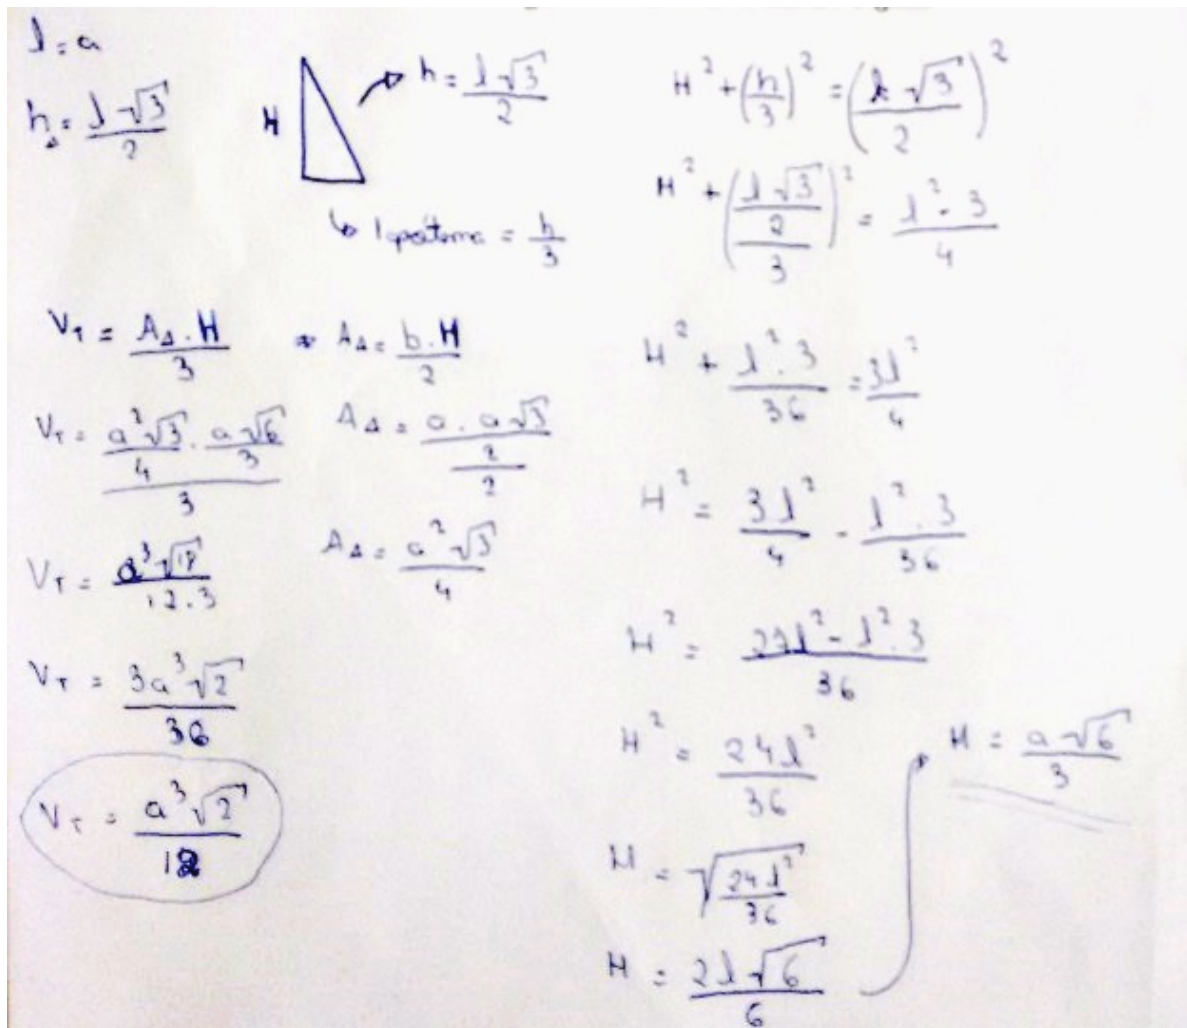 l = a
h_Δ = l√3/2
H
h = l√3/2
↳ apótema = h/3
V_T = A_Δ . H / 3
V_T = (a²√3/4 . a√6/3) / 3
V_T = a³√18 / 12.3
V_T = 3a³√2 / 36
V_T = a³√2 / 12
A_Δ = b . H / 2
A_Δ = (a . a√3 / 2) / 2
A_Δ = a²√3 / 4
H² + (h/3)² = (l√3/2)²
H² + ((l√3/2)/3)² = l² . 3 / 4
H² + l² . 3 / 36 = 3l²/4
H² = 3l²/4 - l² . 3 / 36
H² = (27l² - l² . 3) / 36
H² = 24l²/36
H = √(24l²/36)
H = 2l√6 / 6
H = a√6 / 3